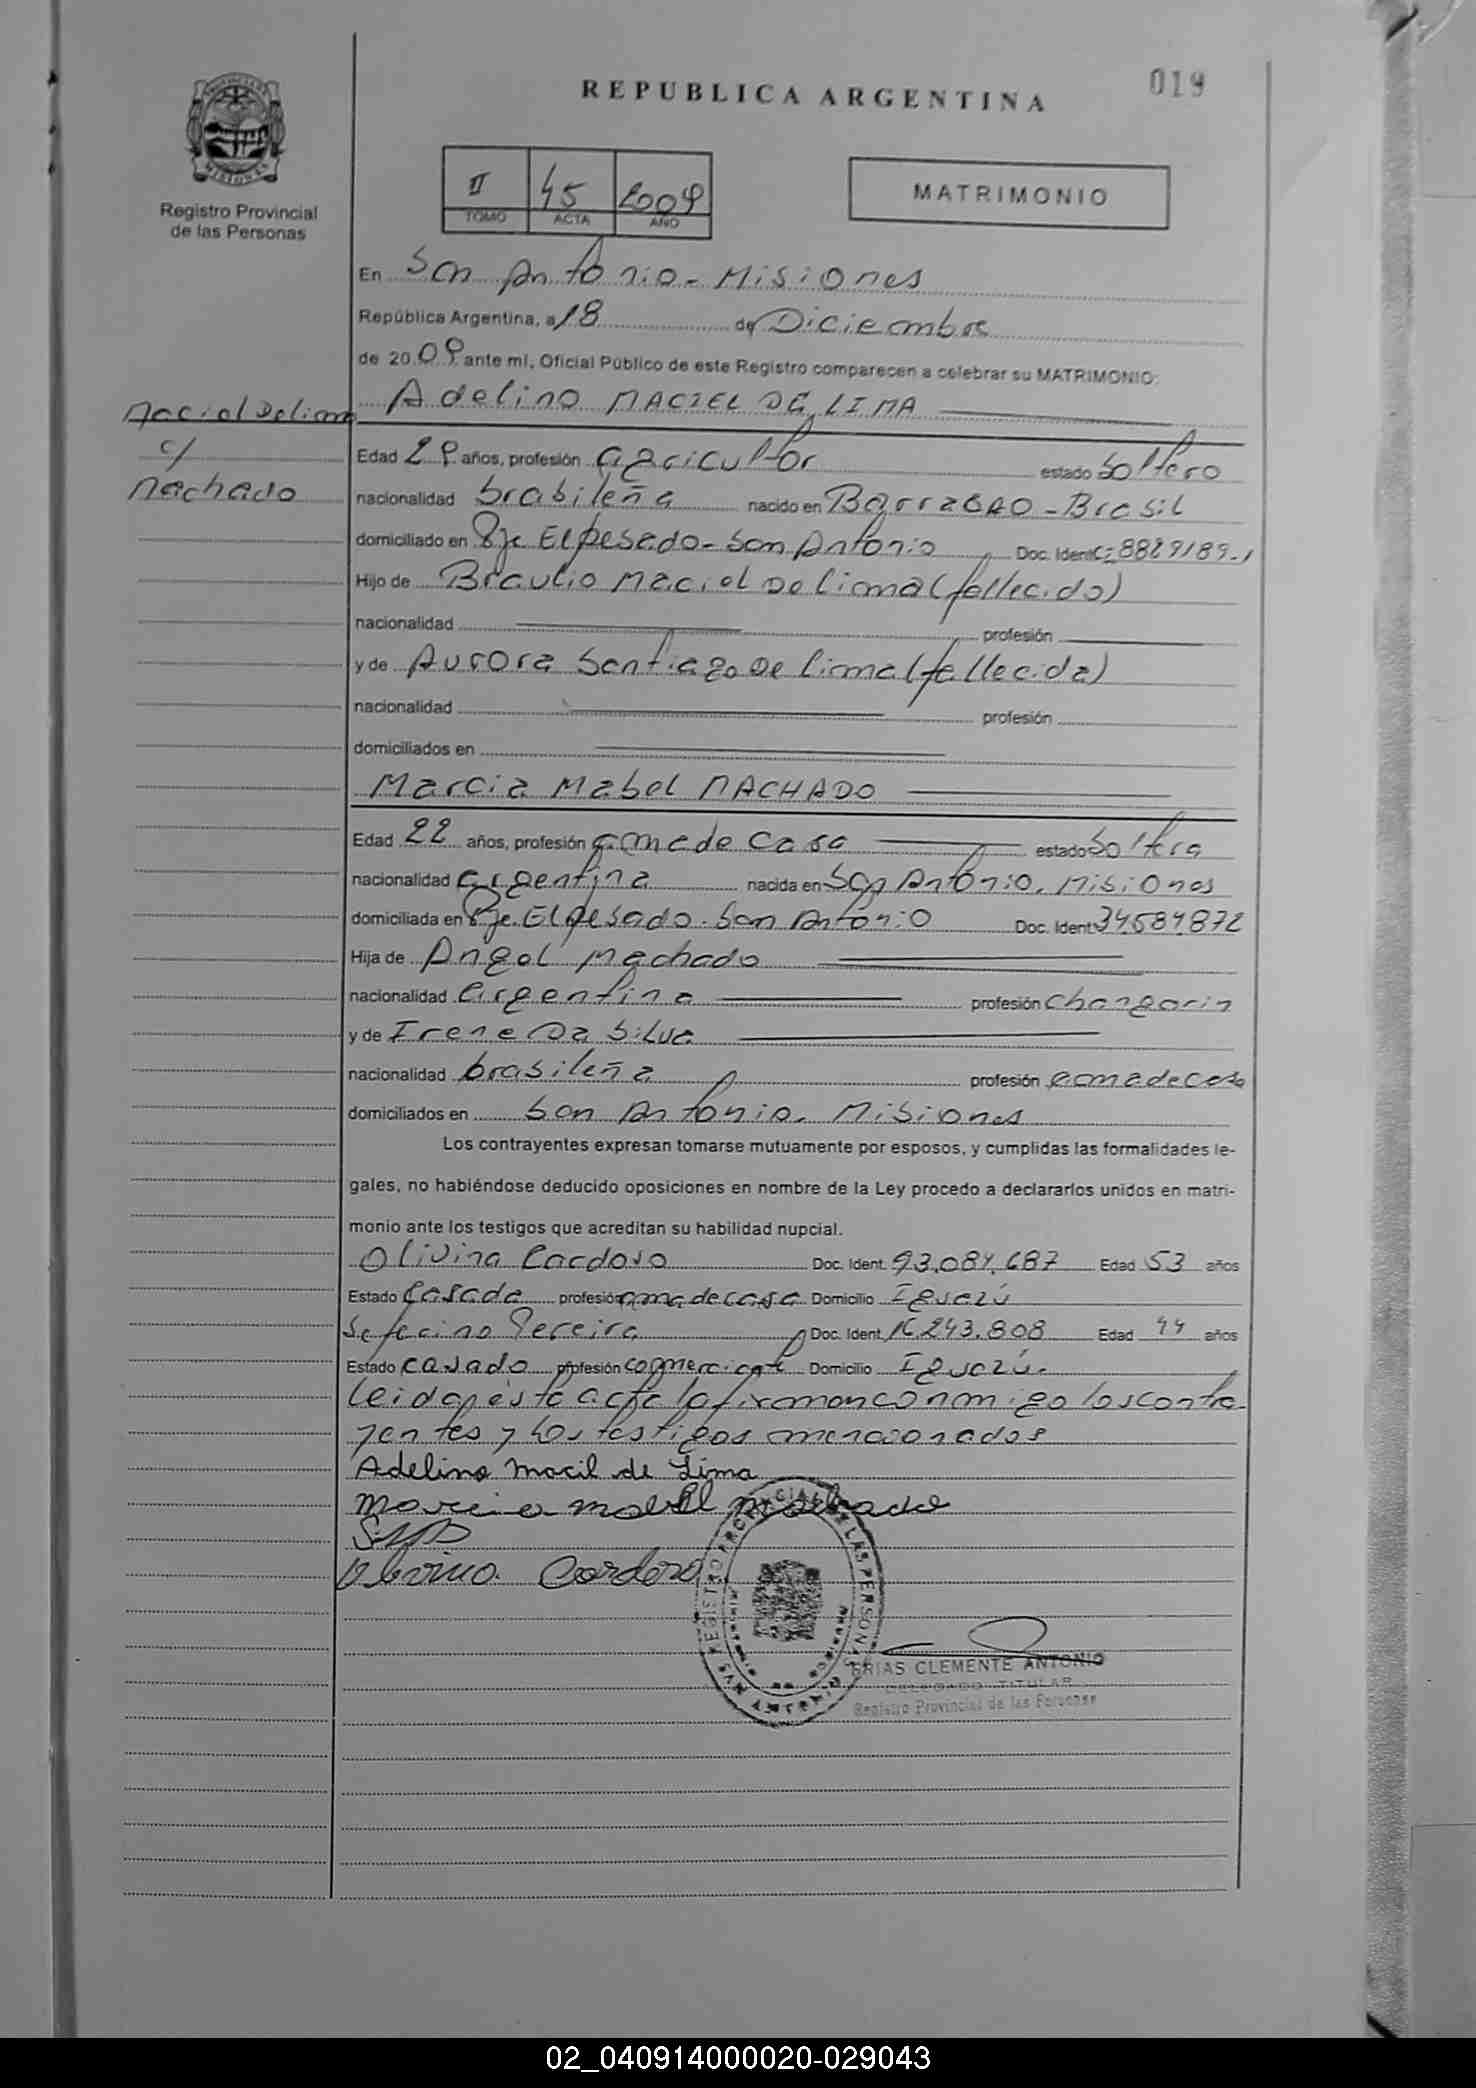 019
REPUBLICA ARGENTINA
II 45 2009
TOMO ACTA AÑO
MATRIMONIO
Registro Provincial
de las Personas
En San Antonio - Misiones
República Argentina, a 18 de Diciembre
de 2009 ante mí, Oficial Público de este Registro comparecen a celebrar su MATRIMONIO:
Adelino MACIEL DE LIMA
Maciel De Lima
c/
Machado
Edad 29 años, profesión agricultor estado Soltero
nacionalidad brasileña nacido en Barracao - Brasil
domiciliado en Pje El pesado - San Antonio Doc. Ident. C: 8829189-1
Hijo de Braulio Maciel De Lima (fallecido)
nacionalidad profesión
y de Aurora Santiago De Lima (fallecida)
nacionalidad profesión
domiciliados en
Marcia Mabel MACHADO
Edad 22 años, profesión ama de casa estado Soltera
nacionalidad argentina nacida en San Antonio. Misiones
domiciliada en Pje. El pesado. San Antonio Doc. Ident 34.584.872
Hija de Angel Machado
nacionalidad argentina profesión changarin
y de Irene Da Silva
nacionalidad brasileña profesión ama de casa
domiciliados en San Antonio. Misiones
Los contrayentes expresan tomarse mutuamente por esposos, y cumplidas las formalidades le-
gales, no habiéndose deducido oposiciones en nombre de la Ley procedo a declararlos unidos en matri-
monio ante los testigos que acreditan su habilidad nupcial.
Olivina Cardoso Doc. Ident. 93.084.687 Edad 53 años
Estado Casada profesión ama de casa Domicilio Iguazú
Seferino Pereira Doc. Ident. 16.243.808 Edad 44 años
Estado casado profesión comerciante Domicilio Iguazú.
Leida esta acta la firman conmigo los contra-
yentes y los testigos mencionados
Adelino Macil de Lima
Marcia Mabel Machado
Olivina Cardoso
REGISTRO PROVINCIAL DE LAS PERSONAS
FRIAS CLEMENTE ANTONIO
DELEGADO TITULAR
Registro Provincial de las Personas
02_040914000020-029043